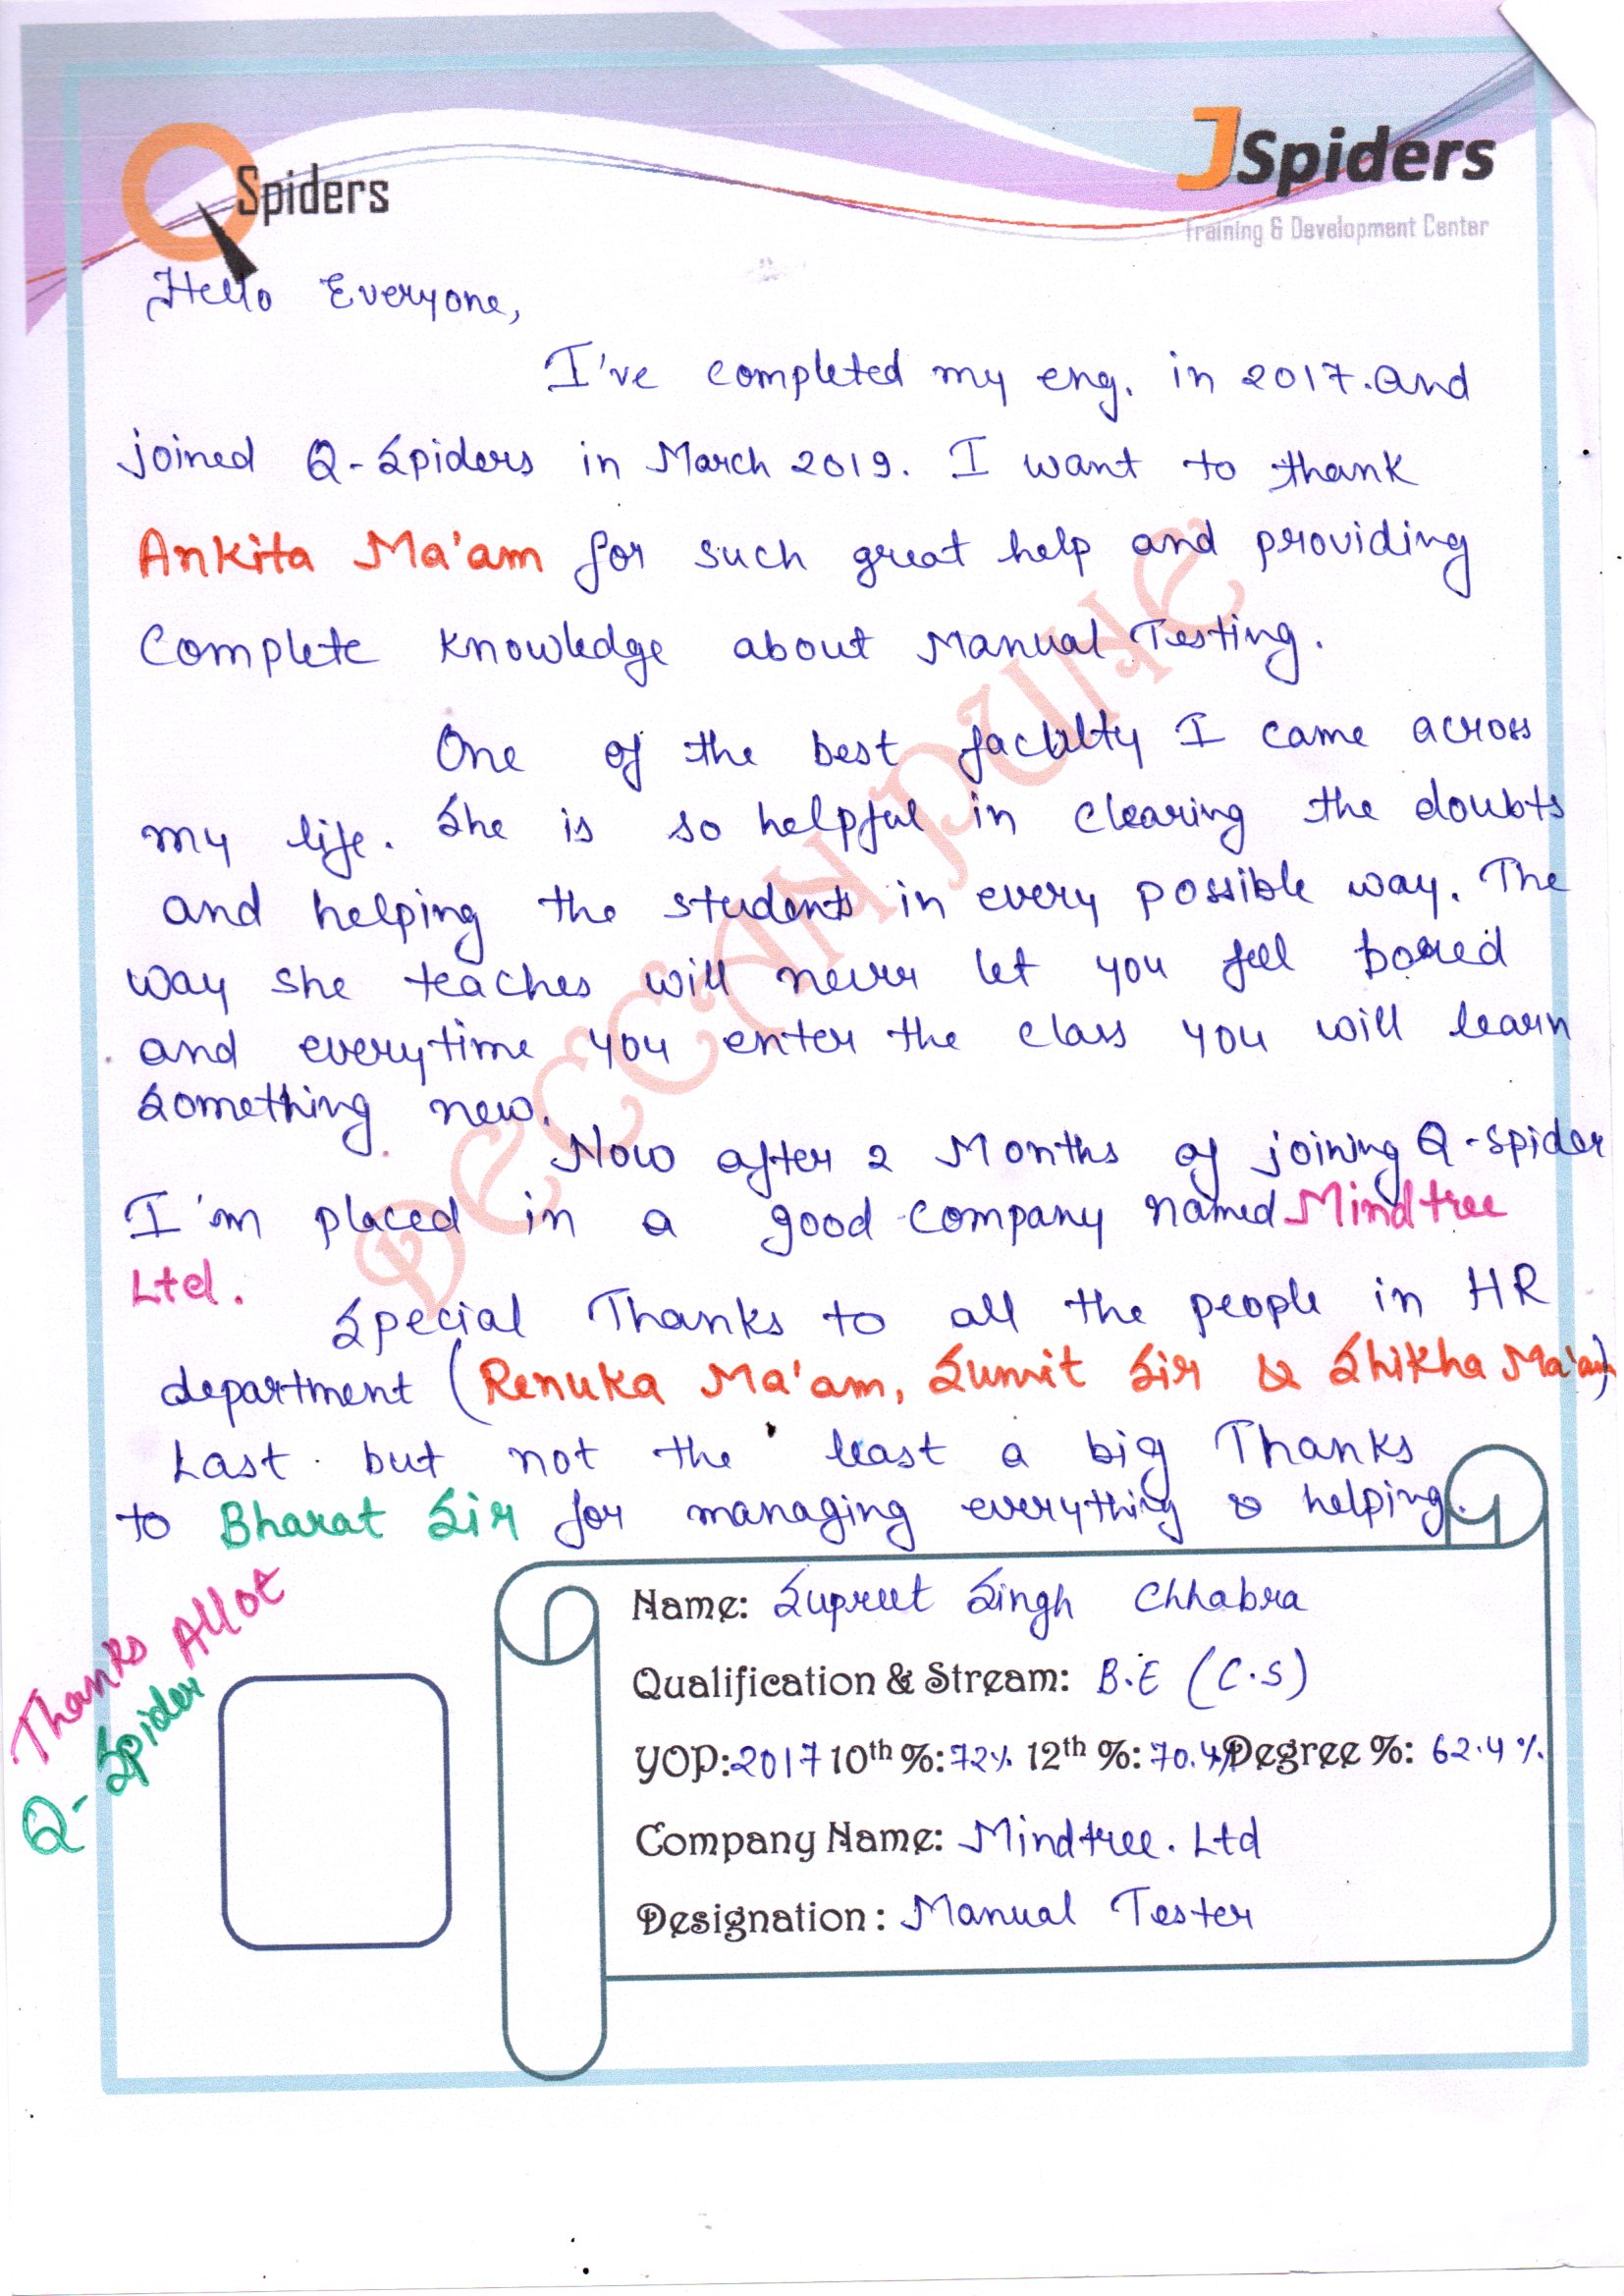 QSpiders
JSpiders
Training & Development Center
Hello Everyone,
I've completed my eng. in 2017. and
joined Q-Spiders in March 2019. I want to thank
Ankita Ma'am for such great help and providing
Complete knowledge about Manual Testing.
One of the best faculty I came across
my life. She is so helpful in clearing the doubts
and helping the students in every possible way. The
way she teaches will never let you feel bored
and everytime you enter the class you will learn
something new.
Now after 2 Months of joining Q-spider
I'm placed in a good company named Mindtree
Ltd.
Special Thanks to all the people in HR
department (Renuka Ma'am, Sumit Sir & Shikha Ma'am)
Last but not the least a big Thanks
to Bharat Sir for managing everything & helping.
Thanks Allot
Q-Spider
DECCAN PUNE
Name: Supreet Singh Chhabra
Qualification & Stream: B.E (C.S)
YOP: 2017 10th %: 72% 12th %: 70.4% Degree %: 62.4%
Company Name: Mindtree. Ltd
Designation: Manual Tester